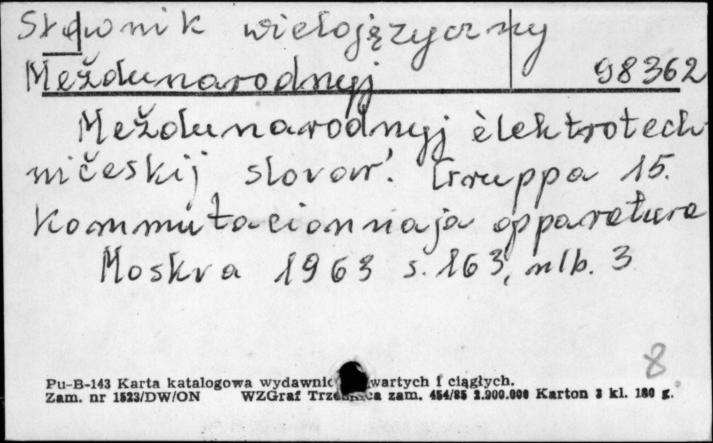 Słownik wielojęzyczny
Meždunarodnyj 98362
Meždunarodnyj èlektrotech
ničeskij slovar'. Gruppa 15.
Kommutacionnaja apparatura
Moskva 1963 s. 163, nlb. 3
8
Pu-B-143 Karta katalogowa wydawnic wartych i ciągłych.
Zam. nr 1523/DW/ON WZGraf Trzebnica zam. 454/85 2.900.000 Karton 3 kl. 180 g.